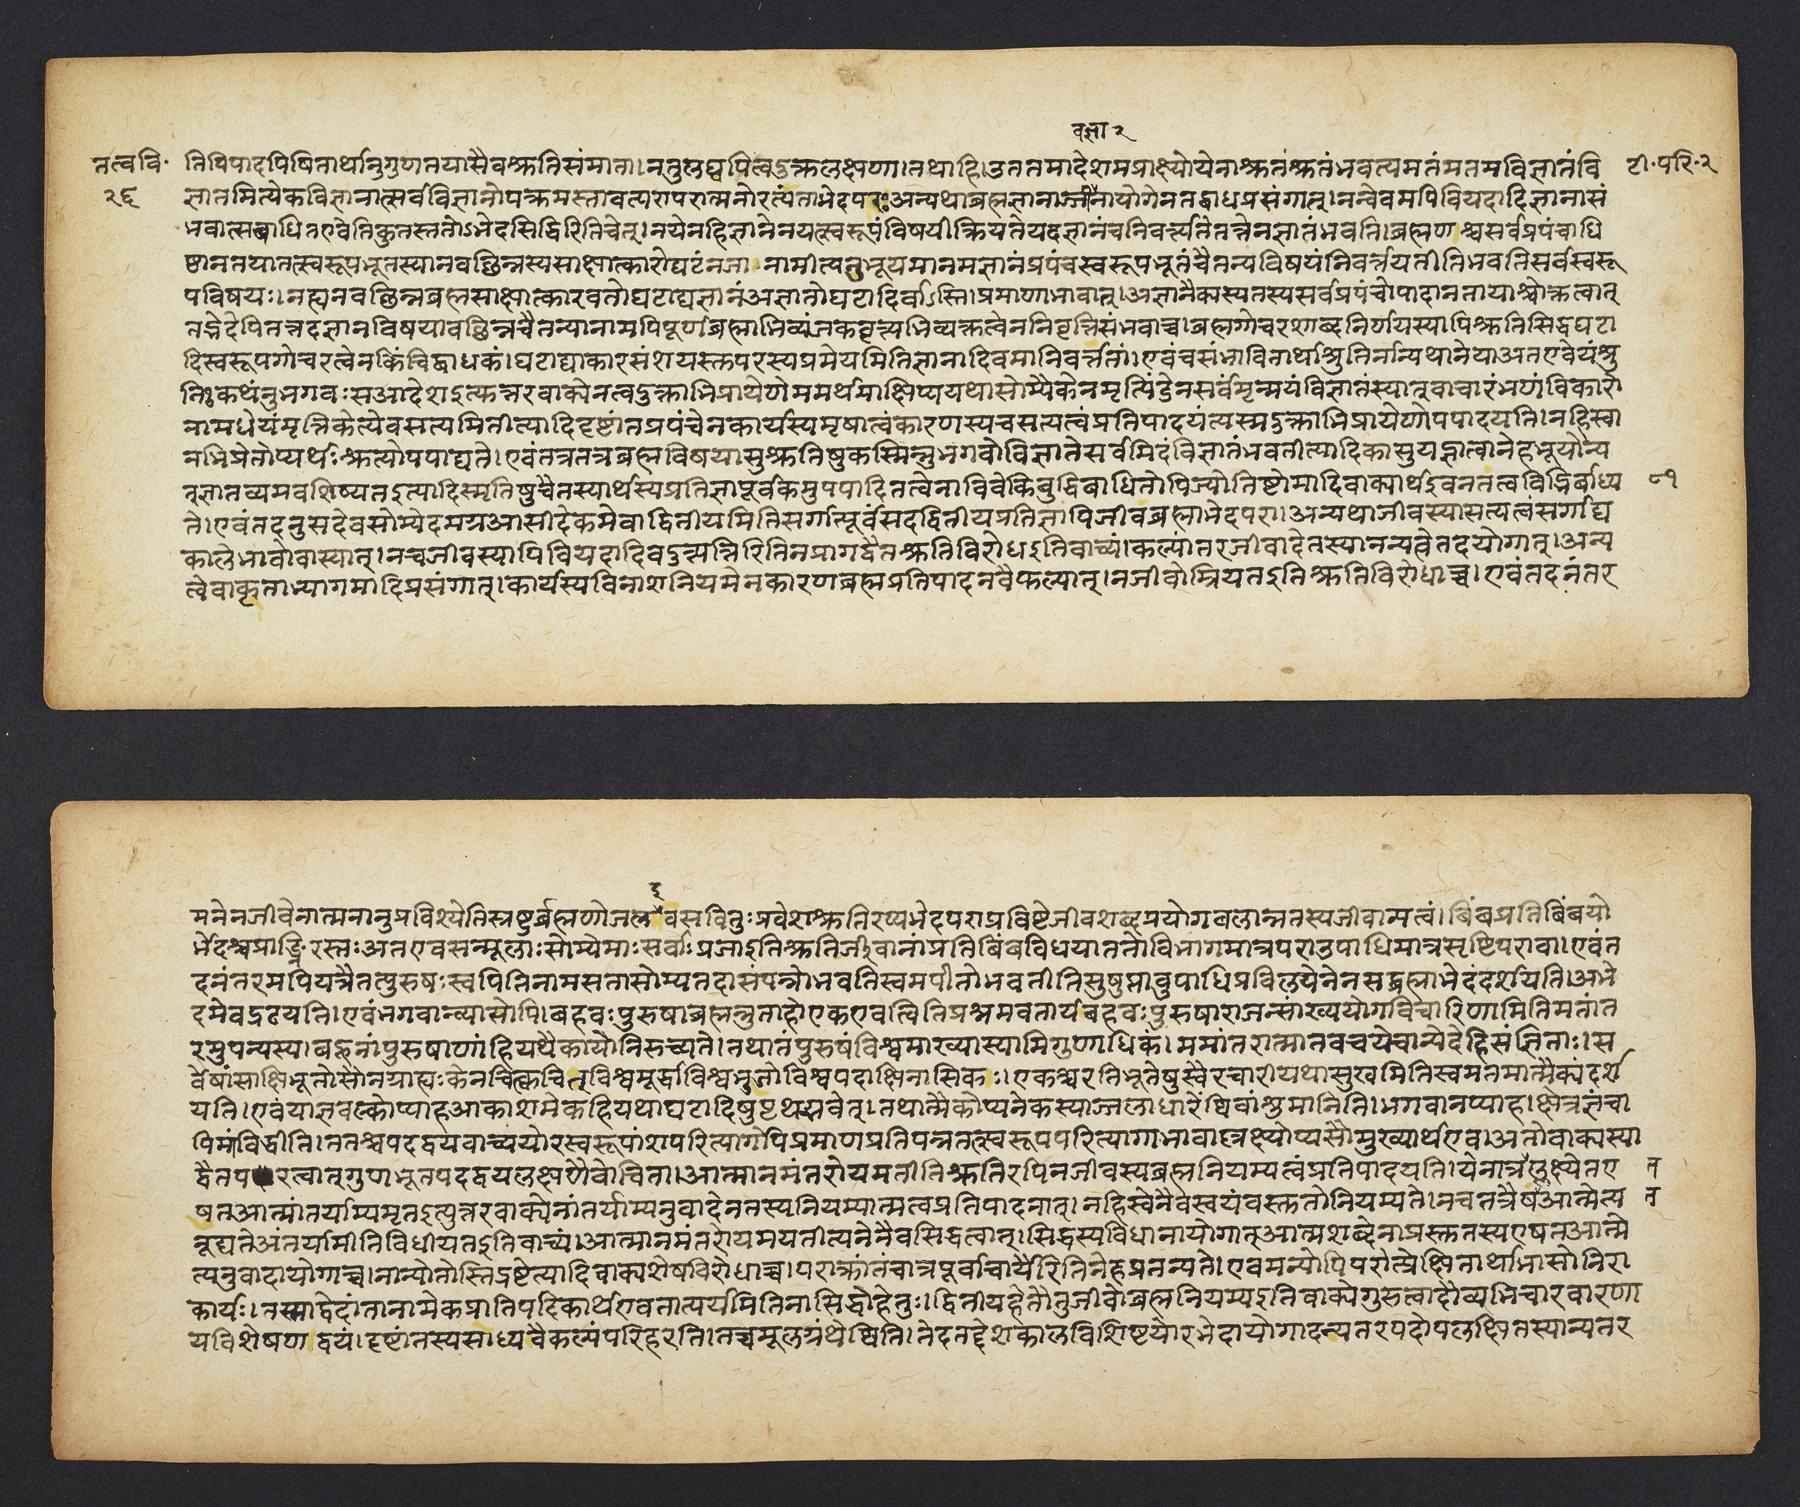 वज्ञा २
तत्ववि॰ तिपिपादपिषितार्थानुगुणतयासैवश्रुतिसंमाता। नतुलघ्वपित्वदुक्तलक्षणा। तथाहि। उततमादेशमप्राक्ष्योयेनाश्रुतंश्रुतंभवत्यमतंमतमविज्ञातंवि टी॰परि॰२
२६ ज्ञातमित्येकविज्ञानात्सर्वविज्ञानोपक्रमस्तावत्परापरात्मनोरत्यंताभेदपरः अन्यथाब्रह्मज्ञानाज्जीवज्ञानायोगेनतद्बाधप्रसंगात्। नन्वेवमपिवियदादिज्ञानासं
भवात्सबाधितएवेतिकुतस्ततोऽभेदसिद्धिरितिचेत्। नयेनहिज्ञानेनयत्स्वरूपंविषयीक्रियतेयदज्ञानंचनिवर्त्यतेतत्तेनज्ञातंभवति। ब्रह्मणश्चसर्वप्रपंचाधि
ष्ठानतयातत्स्वरूपभूतस्यानवछिन्नस्यसाक्षात्कारोघटंनजानामीत्यनुभूयमानमज्ञानंप्रपंचस्वरूपभूतंचैतन्यविषयंनिवर्त्तयतीतिभवतिसर्वस्वरू
पविषयः। नह्यनवछिन्नब्रह्मसाक्षात्कारवतोघटाद्यज्ञानंअज्ञातोघटादिर्वाऽस्ति। प्रमाणाभावात्। अज्ञानैक्यस्यतस्यसर्वप्रपंचोपादानतायाश्चोक्तत्वात्
तद्भेदेपितत्तदज्ञानविषयावछिन्नचैतन्यानामपिपूर्णब्रह्माभिव्यंजकवृत्त्यभिव्यक्तत्वेननिवृत्तिसंभवाच्च। ब्रह्मगोचरशाब्दनिर्णयस्यापिश्रुतिसिद्धघटा
दिस्वरूपगोचरत्वेनकिंचिद्बाधकं। घटाद्याकारसंशयस्तुपरस्यप्रमेयमितिज्ञानादिवमानिवर्त्ततां। एवंचसंभावितार्थाश्रुतिर्नान्यथानेयाअतएवेयंश्रु
तिः कथंनुभगवःसआदेशइत्युत्तरवाक्येनत्वदुक्ताभिप्रायेणेममर्थमाक्षिप्ययथासोम्यैकेनमृत्पिंडेनसर्वंमृन्मयंविज्ञातंस्यात्वाचारंभणंविकारो
नामधेयंमृत्तिकेत्येवसत्यमितीत्यादिदृष्टांतप्रपंचेनकार्यस्यमृषात्वंकारणस्यचसत्यत्वंप्रतिपादयंत्यस्मदुक्ताभिप्रायेणोपपादयति। नहिस्वा
नभिप्रेतोप्यर्थःश्रुत्योपपाद्यते। एवंतत्रतत्रब्रह्मविषयासुश्रुतिषुकस्मिन्नुभगवोविज्ञातेसर्वमिदंविज्ञातंभवतीत्यादिकासुयज्ज्ञात्वानेहभूयोन्य
त्ज्ञातव्यमवशिष्यतइत्यादिस्मृतिषुचैतस्यार्थस्यप्रतिज्ञापूर्वकमुपपादितत्वेनाविवेकिबुद्धिबाधितोपिज्योतिष्टोमादिवाक्यार्थइवनतत्वविद्भिर्बाध्य
ते। एवंतदनुसदेवसोम्येदमग्रआसीदेकमेवाद्वितीयमितिसर्गात्पूर्वंसदद्वितीयप्रतिज्ञापिजीवब्रह्माभेदपरा। अन्यथाजीवस्यासत्यत्वंसर्गाद्य
कालेभावोवास्यात्। नचजीवस्यापिवियदादिवदुत्पत्तिरितिनप्रागद्वैतश्रुतिविरोधइतिवाच्यं। कल्पांतरजीवादेतस्यानन्यत्वेतदयोगात्। अन्य
त्वेवाकृताभ्यागमादिप्रसंगात्। कार्यस्यविनाशनियमेनकारणब्रह्मप्रतिपादनवैफल्यात्। नजीवोम्रियतइतिश्रुतिविरोधाच्च। एवंतदनंतर
मनेनजीवेनात्मनानुप्रविश्येतिस्रष्टुर्ब्रह्मणोजलइवसवितुःप्रवेशश्रुतिरप्यभेदपराप्रविष्टेजीवशब्दप्रयोगबलान्नतस्यजीवान्यत्वं। बिंबप्रतिबिंबयो
र्भेदश्चप्राङ्निरस्तः अतएवसन्मूलाःसोम्येमाःसर्वाःप्रजाइतिश्रुतिर्जीवानांप्रतिबिंबविधयाततोविभागमात्रपराउपाधिमात्रसृष्टिपरावा। एवंत
दनंतरमपियत्रैतत्पुरुषःस्वपितिनामसतासोम्यतदासंपन्नोभवतिस्वमपीतोभवतीतिसुषुप्तावुपाधिप्रविलयेनेनसद्ब्रह्माभेदंदर्शयति। अभे
दमेवद्रढयति। एवंभगवान्व्यासोपि। बहवःपुरुषाब्रह्मन्नुताहोएकएवत्वितिप्रश्नमवतार्यबहवःपुरुषाराजन्सांख्ययोगविचारिणामितिमतांत
रमुपन्यस्य। बहूनांपुरुषाणांहियथैकायोनिरुच्यते। तथातंपुरुषंविश्वमाख्यास्यामिगुणाधिकं। ममांतरात्मातवचयेचान्येदेहिसंज्ञिताः। स
र्वेषांसाक्षिभूतोसौनग्राह्यःकेनचित्क्वचित्विश्वमूर्द्धाविश्वभुजोविश्वपदाक्षिनासिकः। एकश्चरतिभूतेषुस्वैरचारीयथासुखमितिस्वमतमात्मैक्यंदर्श
यति। एवंयाज्ञवल्क्योप्याहआकाशमेकंहियथाघटादिषुपृथग्भवेत्। तथात्मैकोप्यनेकस्याज्जलाधारेष्विवांशुमानिति। भगवानप्याह। क्षेत्रज्ञंचा
पिमांविद्धीति। ततश्चपदद्वयवाच्ययोरस्वरूपांशपरित्यागेपिप्रमाणप्रतिपन्नतत्स्वरूपपरित्यागाभावाल्लक्ष्योप्यसौमुख्यार्थएव। अतोवाक्यस्या
द्वैतपरत्वात्गुणभूतपदद्वयलक्षणैवोचिता। आत्मानमंतरोयमतीतिश्रुतिरपिनजीवस्यब्रह्मनियम्यत्वंप्रतिपादयति। येनात्रलक्ष्येतए त
षतआत्मांतर्याम्यमृतइत्युत्तरवाक्येनांतर्याम्यनुवादेनतस्यनियम्यात्मत्वप्रतिपादनात्। नहिस्वेनैवस्वयंवस्तुतोनियम्यते। नचतत्रैषआत्मेत्य त
नूद्यतेअंतर्यामीतिविधीयतइतिवाच्यं। आत्मानमंतरोयमयतीत्यनेनैवसिद्धत्वात्। सिद्धस्यविधानायोगात्आत्मशब्देनाप्रस्तुतस्यएषतआत्मे
त्यनुवादायोगाच्च। नान्योतोस्तिद्रष्टेत्यादिवाक्यशेषविरोधाच्च। पराक्रांतंचात्रपूर्वाचार्यैरितिनेहप्रतन्यते। एवमन्योपिपरोत्प्रेक्षितार्थाभासोनिरा
कार्यः। तस्माद्वेदांतानामेकप्रातिपदिकार्थएवतात्पर्यमितिनासिद्धोहेतुः। द्वितीयहेतौतुजीवोब्रह्मनियम्यइतिवाक्येगुरुत्वादौव्यभिचारवारणा
यविशेषणद्वयं। दृष्टांतस्यसाध्यवैकल्यंपरिहरति। तच्चमूलग्रंथेष्विति। तेदतद्देशकालविशिष्टयोरभेदायोगादन्यतरपदोपलक्षितस्यान्यतर